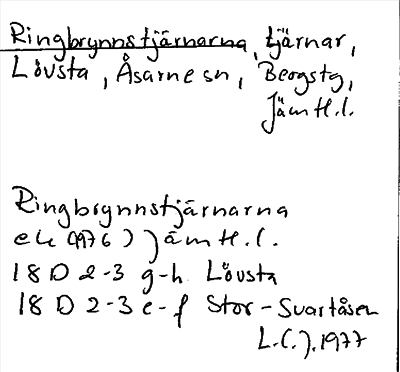 Ringbrynnstjärnarna, tjärnar,
Lövsta, Åsarne sn, Bergstg,
Jämtl.l.
Ringbrynnstjärnarna
ek (1976) Jämtl.l.
18 D 2-3 g-h Lövsta
18 D 2-3 e-f Stor-Svartåsen
L.C.J. 1977